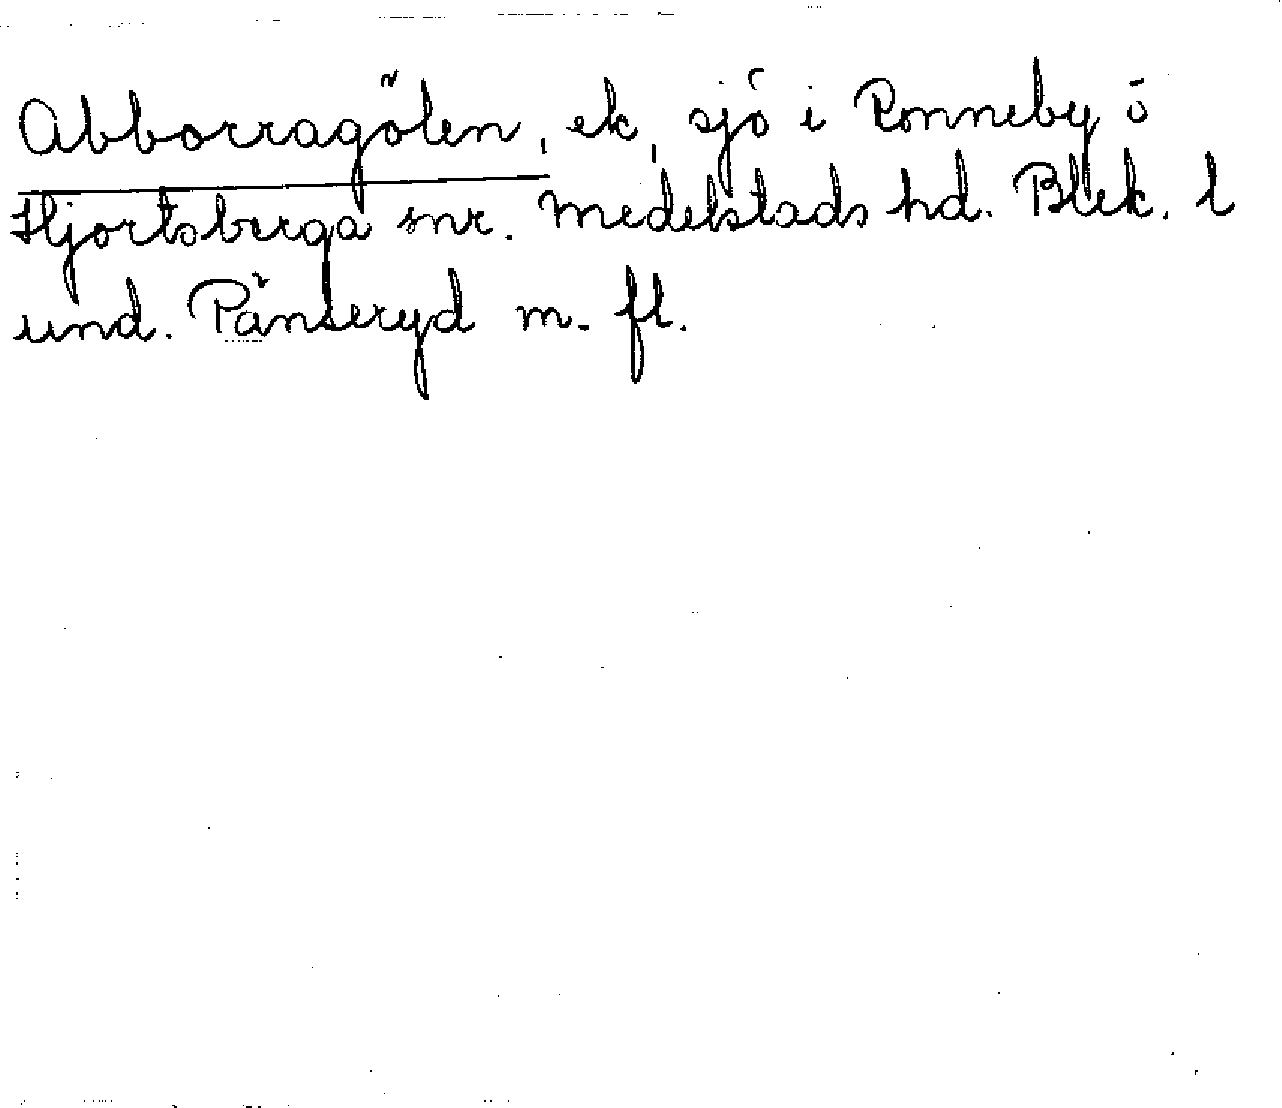 Abborragölen, ek, sjö i Ronneby ö
Hjortsberga snr. Medelstads hd. Blek. l
und. Pänseryd m. fl.